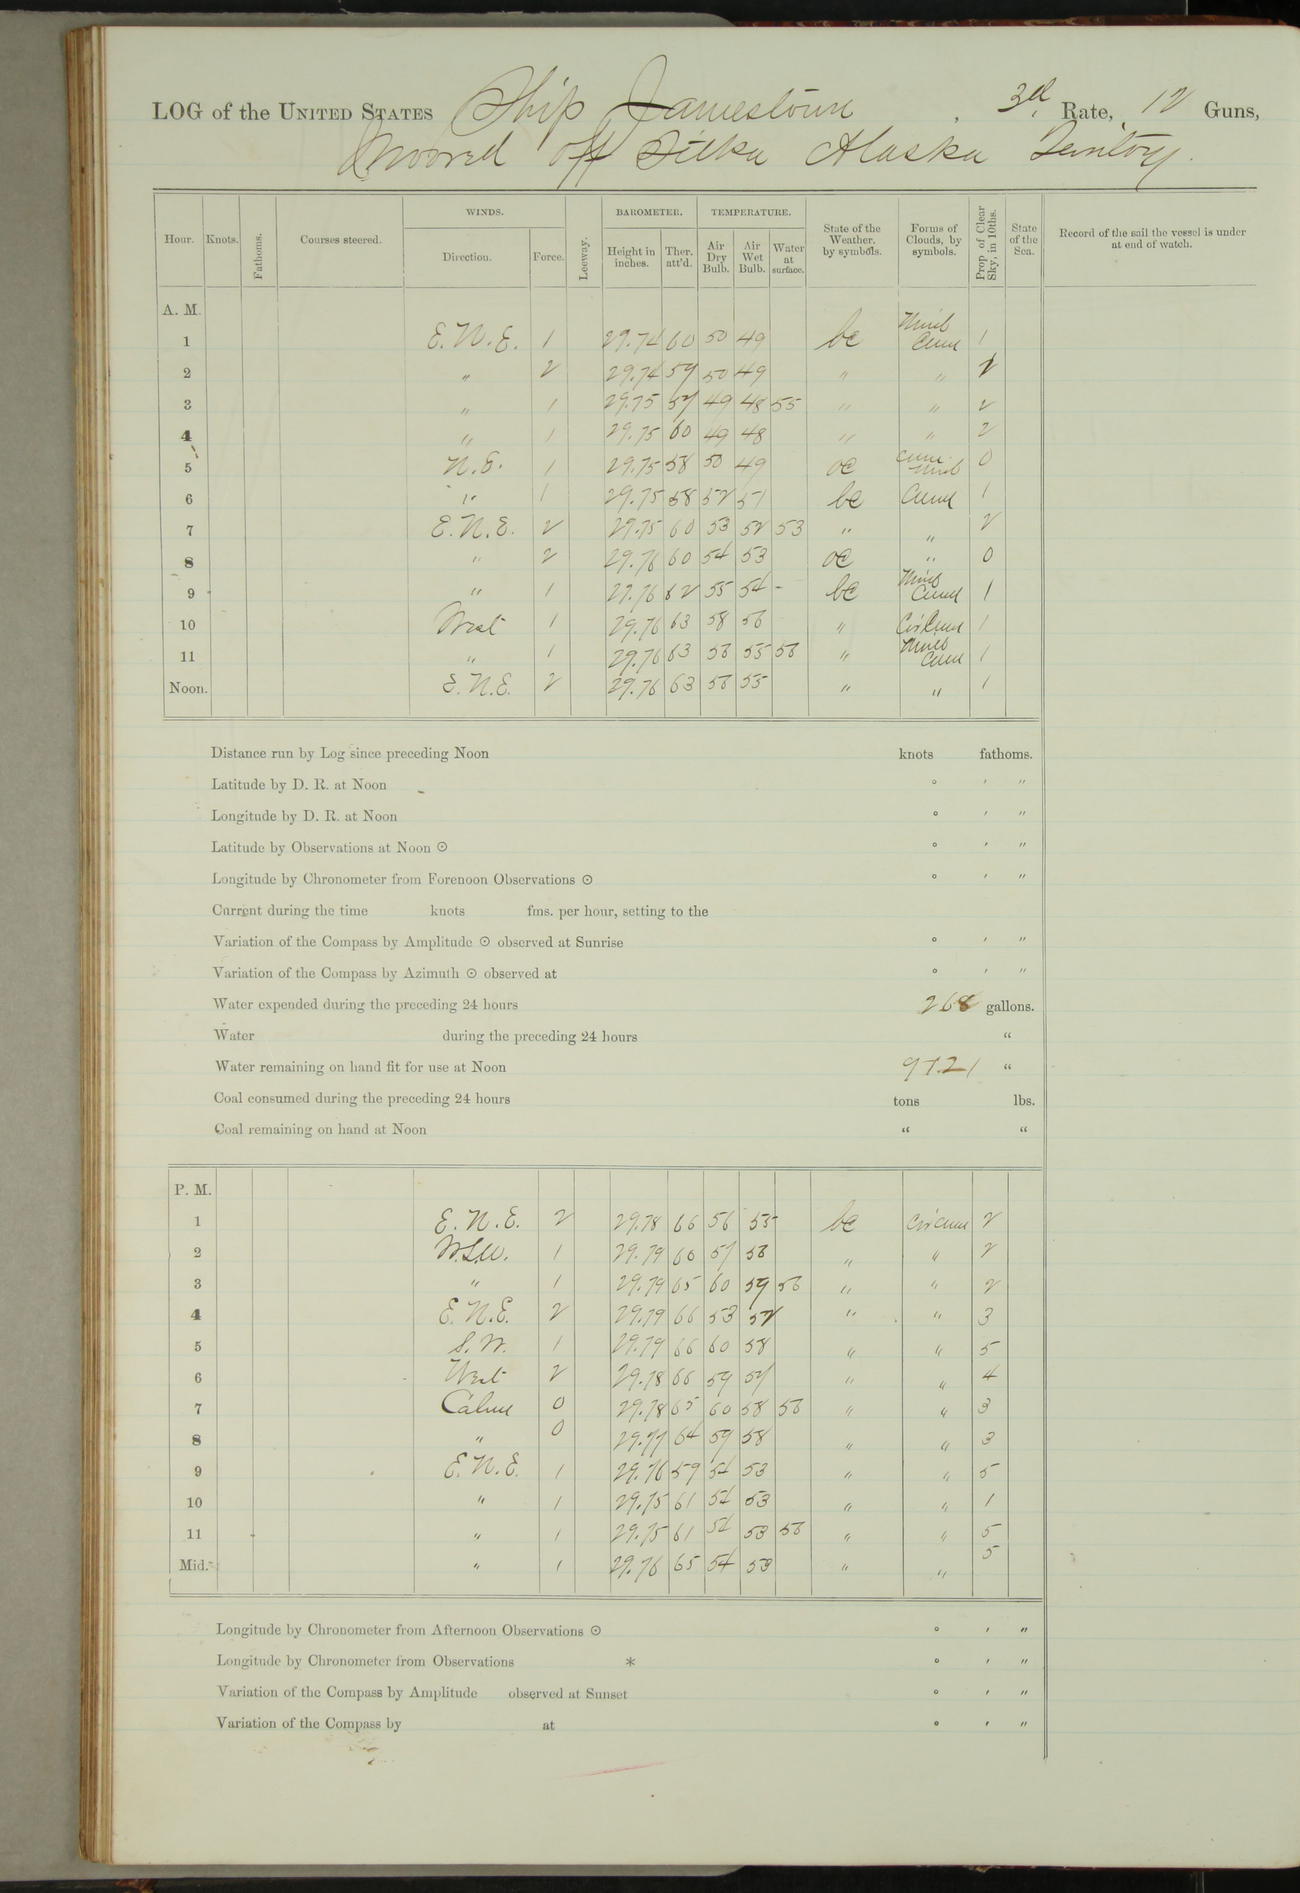 LOG of the UNITED STATES Ship Jamestown, 3d. Rate, 12 Guns,
Moored off Sitka Alaska Territory.
WINDS. BAROMETER. TEMPERATURE.
Hour. Knots. Fathoms. Courses steered. Direction. Force. Leeway. Height in inches. Ther. att'd. Air Dry Bulb. Air Wet Bulb. Water at surface. State of the Weather, by symbols. Forms of Clouds, by symbols. Prop. of Clear Sky, in 10ths. State of the Sea. Record of the sail the vessel is under at end of watch.
A. M.
1 E.N.E. 1 29.74 60 50 49 bc Nimb Cum 1
2 " 2 29.74 59 50 49 " "
3 " 1 29.75 59 49 48 55 " " 2
4 " 1 29.75 60 49 48 " " 2
5 N.E. 1 29.75 58 50 49 oc Cum Nimb 0
6 " 1 29.75 58 52 51 bc Cum 1
7 E.N.E. 2 29.75 60 53 52 53 " " 2
8 " 2 29.76 60 54 53 oc " 0
9 " 1 29.76 62 55 54 - bc Nimb Cum 1
10 West 1 29.76 63 58 56 " Cir Cum 1
11 " 1 29.76 63 58 55 58 " Nimb Cum 1
Noon. E.N.E. 2 29.76 63 58 55 " " 1
Distance run by Log since preceding Noon knots fathoms.
Latitude by D. R. at Noon ° ′ ″
Longitude by D. R. at Noon ° ′ ″
Latitude by Observations at Noon ☉ ° ′ ″
Longitude by Chronometer from Forenoon Observations ☉ ° ′ ″
Current during the time knots fms. per hour, setting to the
Variation of the Compass by Amplitude ☉ observed at Sunrise ° ′ ″
Variation of the Compass by Azimuth ☉ observed at ° ′ ″
Water expended during the preceding 24 hours 268 gallons.
Water during the preceding 24 hours "
Water remaining on hand fit for use at Noon 9721 "
Coal consumed during the preceding 24 hours tons lbs.
Coal remaining on hand at Noon " "
P. M.
1 E.N.E. 2 29.78 66 56 55 bc Cir Cum 2
2 W.S.W. 1 29.79 66 59 58 " " 2
3 " 1 29.79 65 60 59 58 " " 2
4 E.N.E. 2 29.79 66 53 52 " " 3
5 S.W. 1 29.79 66 60 58 " " 5
6 West 2 29.78 66 59 59 " " 4
7 Calm 0 29.78 65 60 58 58 " " 3
8 " 0 29.77 64 59 58 " " 3
9 E.N.E. 1 29.76 59 54 53 " " 5
10 " 1 29.75 61 54 53 " " 1
11 " 1 29.75 61 54 53 58 " " 5
Mid. " 1 29.76 65 54 53 " " 5
Longitude by Chronometer from Afternoon Observations ☉ ° ′ ″
Longitude by Chronometer from Observations * ° ′ ″
Variation of the Compass by Amplitude observed at Sunset ° ′ ″
Variation of the Compass by at ° ′ ″